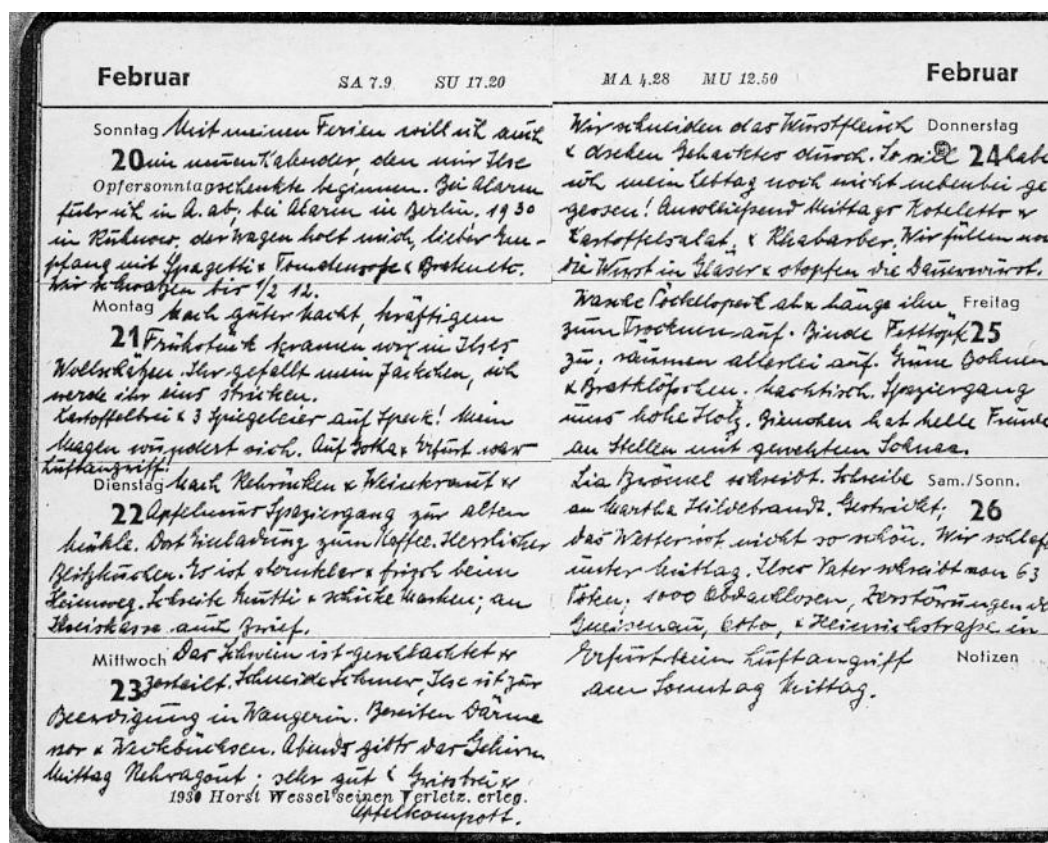 Februar SA 7.9 SU 17.20
Sonntag Mit meinen Ferien will ich auch
20 ein neuen Kalender, den mir Ilse
Opfersonntag schenkte beginnen. Bei Alarm
fuhr ich in A. ab, bei Alarm in Berlin. 1930
in Rühnow, der Wagen holt mich, lieber Em-
pfang mit Spagetti & Tomatensoße & Braten etc.
Wir schwatzen bis 1/2 12.
Montag Nach guter Nacht, kräftigem
21 Frühstück kramen wir in Ilses
Wollschätzen. Ihr gefällt mein Jäckchen, ich
werde ihr eins stricken.
Kartoffelbrei & 3 Spiegeleier auf Speck! Mein
Magen wundert sich. Auf Gotha & Erfurt war
Luftangriff.
Dienstag Nach Rehrücken & Weinkraut &
22 Apfelmus Spaziergang zur alten
Mühle. Dort Einladung zum Kaffee. Herrlicher
Blitzkuchen. Es ist dunkler & frisch beim
Heimweg. Schreibe Mutti & schicke Marken; an
Kreiskasse auch Brief.
Mittwoch Das Schwein ist geschlachtet &
23 zerteilt. Schneide Schmer, Ilse ist zur
Beerdigung in Wangerin. Bereiten Därme
vor & Weckbüchsen. Abends gibts das Gehirn
Mittag Rehragout; sehr gut & Griesbrei &
1930 Horst Wessel seinen Verletz. erleg.
Apfelkompott.
MA 4.28 MU 12.50 Februar
Wir schneiden das Wurstfleisch Donnerstag
& drehen Gehacktes durch. So viel 24 habe
ich mein Lebtag noch nicht nebenbei ge
gessen! Anschließend Mittags Koteletts &
Kartoffelsalat, & Rhabarber. Wir füllen noch
die Wurst in Gläser & stopfen die Dauerwurst.
Wasche Pöckelspeck ab & hänge ihn Freitag
zum Trocknen auf. Binde Fetttöpfe 25
zu; räumen allerlei auf. Grüne Bohnen
& Bratklöpschen. Nachtisch. Spaziergang
ins hohe Holz. Bienchen hat helle Freude
an Stellen mit gewehtem Schnee.
Lia Brömel schreibt. Schreibe Sam./Sonn.
an Martha Hildebrandt. Gestrickt; 26
das Wetter ist nicht so schön. Wir schlafen
unter Mittag. Ilses Vater schreibt von 63
Toten, 1000 Obdachlosen, Zerstörungen der
Gneisenau, Otto, & Heinrichstraße in
Erfurt beim Luftangriff Notizen
am Sonntag Mittag.